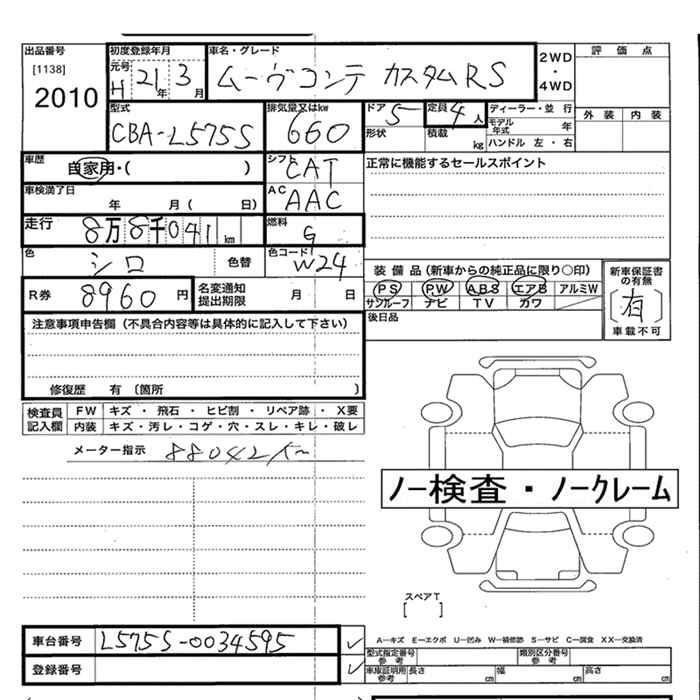 出品番号
[1138]
2010
初度登録年月
元号
H 21年 3月
車名・グレード
ムーヴコンテ カスタムRS
2WD
・
4WD
評価点
外装 内装
型式
CBA-L575S
排気量又はkw
660
ドア 5
形状
定員 4人
積載 kg
ディーラー・並行
モデル年式 年
ハンドル 左・右
車歴
自家用・( )
シフト
CAT
正常に機能するセールスポイント
車検満了日
年 月( 日)
AC
AAC
走行
8万8千041km
燃料
G
色
シロ 色替
色コード
W24
R券 8960円
名変通知
提出期限 月 日
装備品(新車からの純正品に限り○印)
PS PW ABS エアB アルミW
サンルーフ ナビ TV カワ
新車保証書
の有無
〔有〕
車載不可
後日品
注意事項申告欄(不具合内容等は具体的に記入して下さい)
修復歴 有〔箇所 )
検査員
記入欄
FW キズ・飛石・ヒビ割・リペア跡・X要
内装 キズ・汚レ・コゲ・穴・スレ・キレ・破レ
メーター指示 88042km
ノー検査・ノークレーム
スペアT
[ ]
車台番号 L575S-0034595 ✓
登録番号 ✓
A―キズ E―エクボ U―凹み W―補修跡 S―サビ C―腐食 XX―交換済
型式指定番号
参考
類別区分番号
参考
車庫証明用
参考
長さ cm 幅 cm 高さ cm